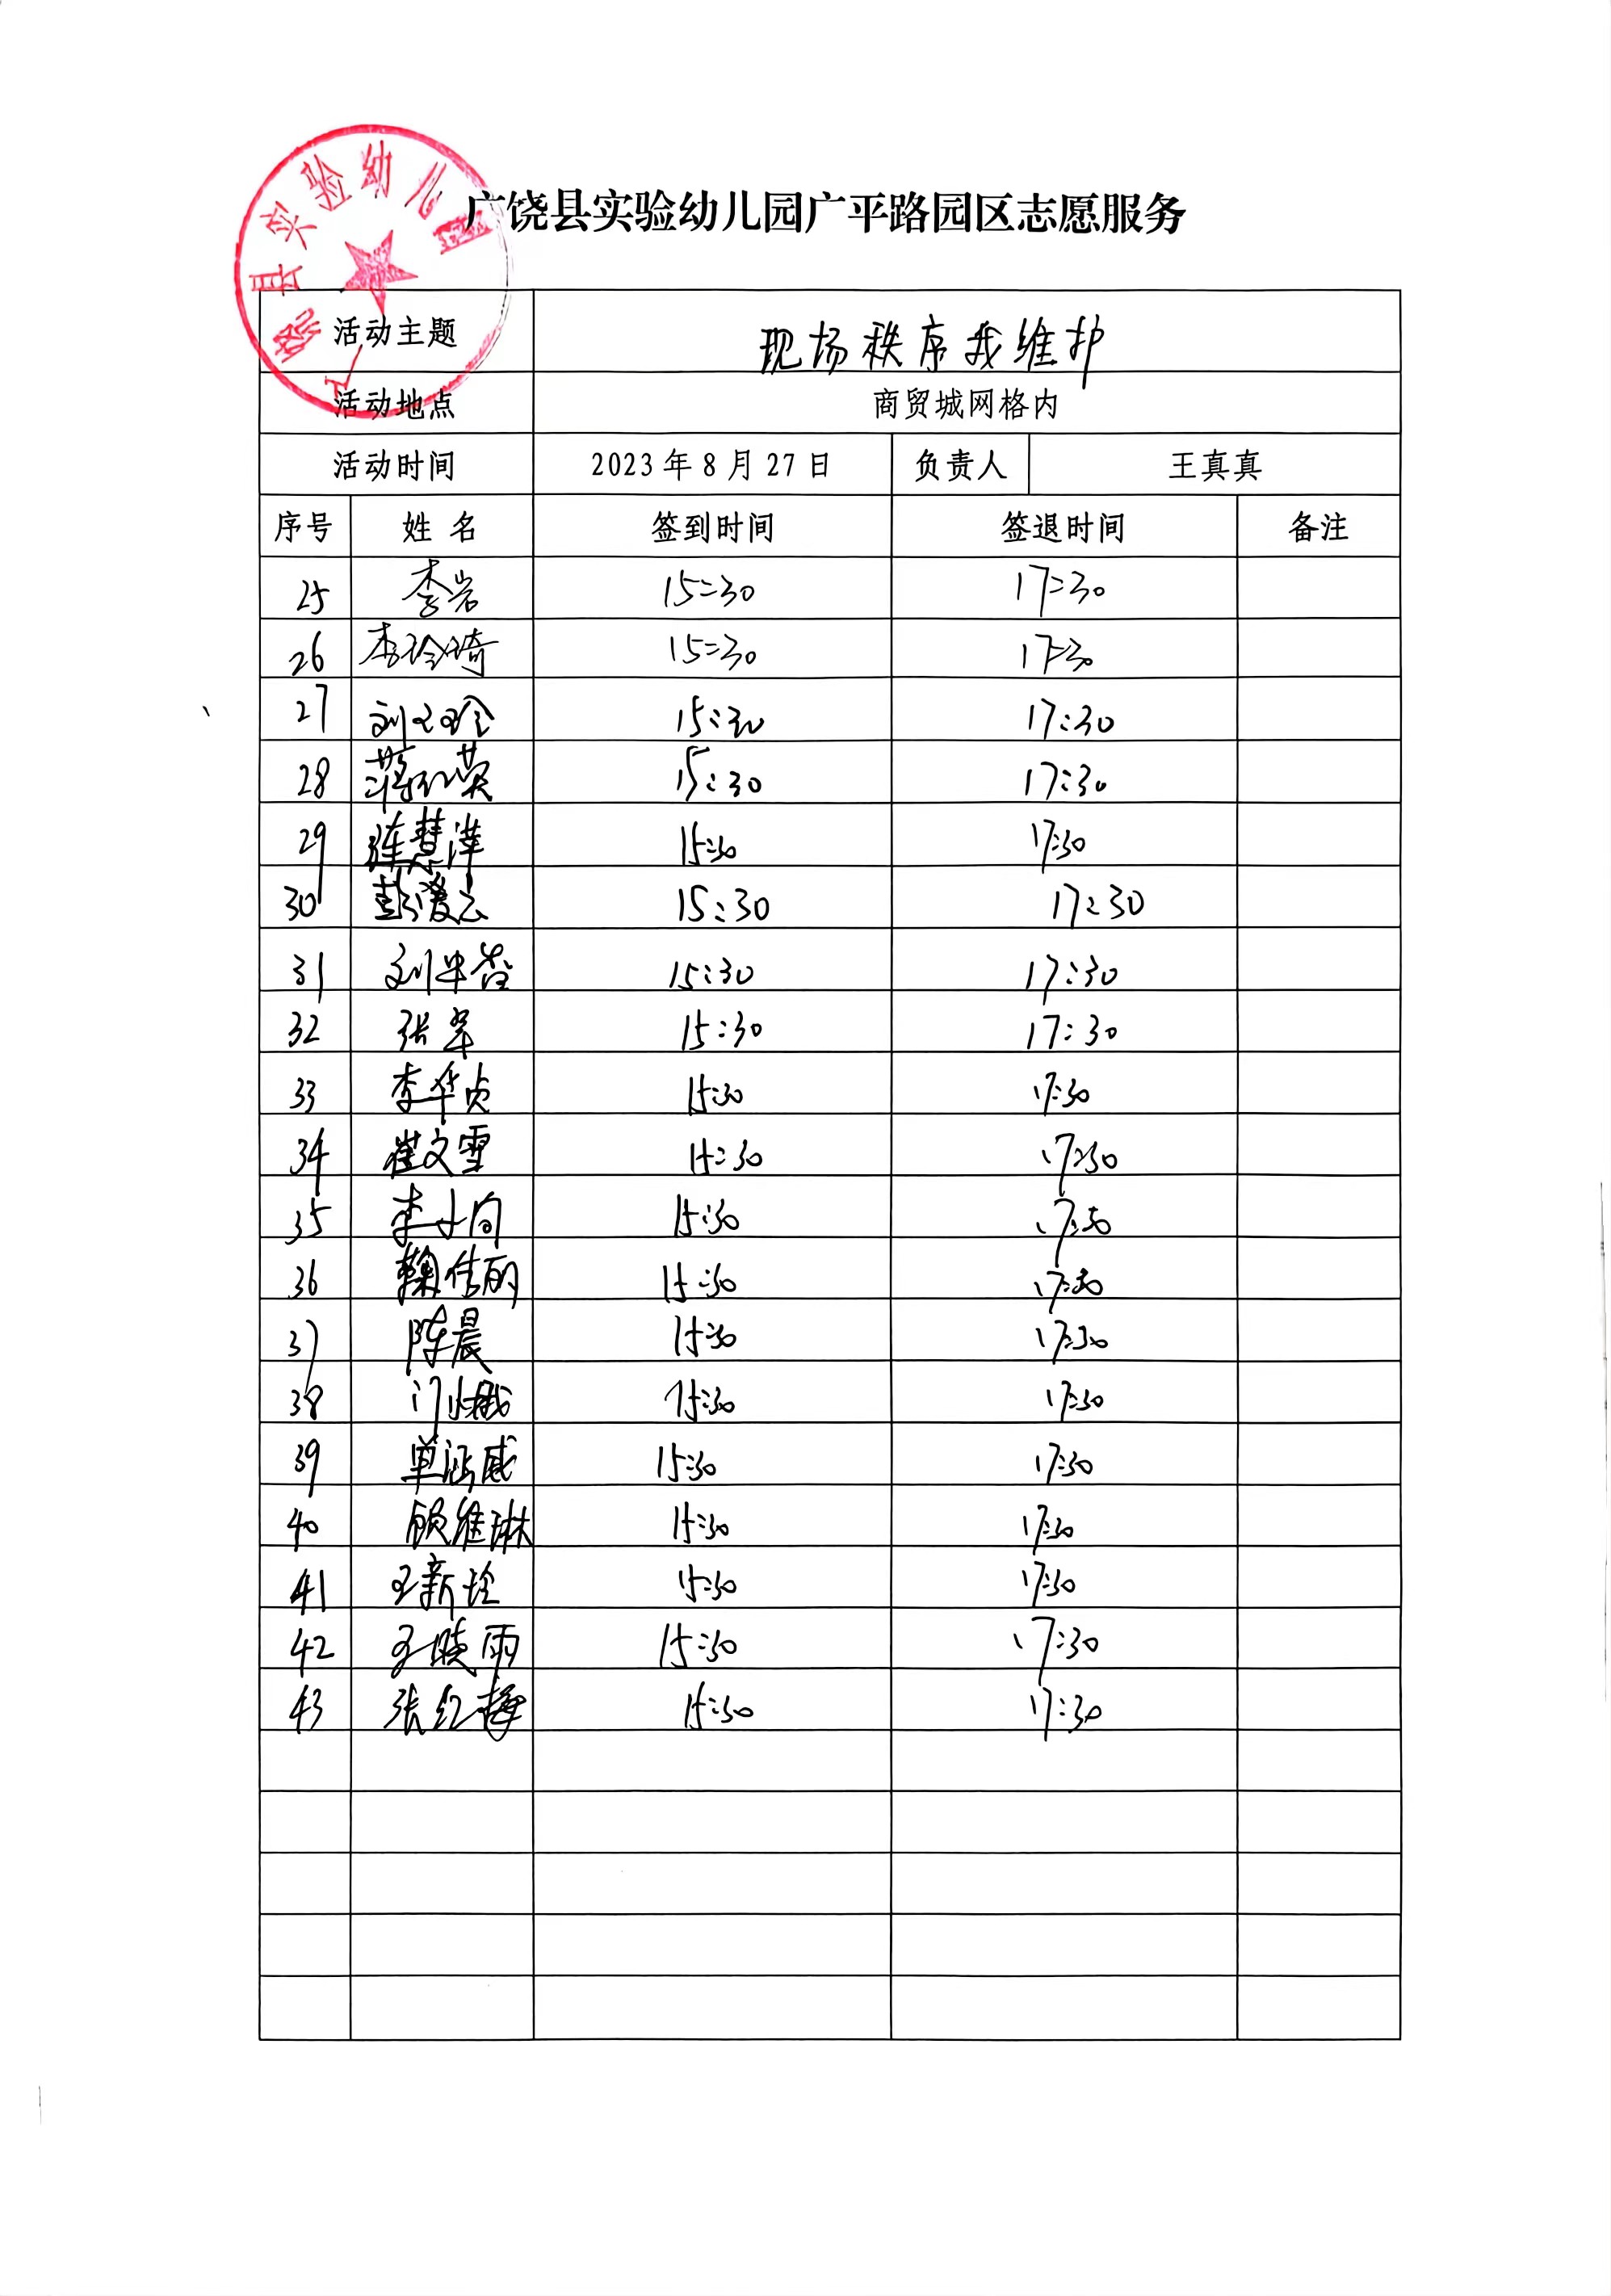 广饶县实验幼儿园
广饶县实验幼儿园广平路园区志愿服务
活动主题 现场秩序我维护
活动地点 商贸城网格内
活动时间 2023年8月27日 负责人 王真真
序号 姓名 签到时间 签退时间 备注
25 李岩 15:30 17:30
26 李玲琦 15:30 17:30
27 刘文玲 15:30 17:30
28 蒋红英 15:30 17:30
29 张慧萍 15:30 17:30
30 彭 15:30 17:30
31 刘 15:30 17:30
32 张翠 15:30 17:30
33 李华贞 15:30 17:30
34 崔文雪 15:30 17:30
35 李 15:30 17:30
36 鞠佳丽 15:30 17:30
37 陈晨 15:30 17:30
38 门 15:30 17:30
39 单 15:30 17:30
40 顾维琳 15:30 17:30
41 王新玲 15:30 17:30
42 王晓雨 15:30 17:30
43 张红梅 15:30 17:30